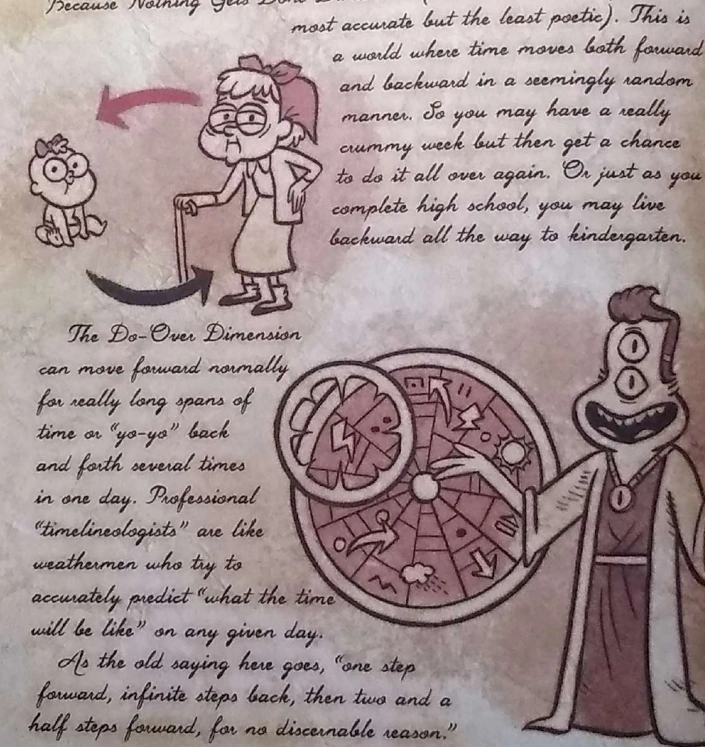 Because Nothing Gets Done
most accurate but the least poetic). This is
a world where time moves both forward
and backward in a seemingly random
manner. So you may have a really
crummy week but then get a chance
to do it all over again. Or just as you
complete high school, you may live
backward all the way to kindergarten.
The Do-Over Dimension
can move forward normally
for really long spans of
time or "yo-yo" back
and forth several times
in one day. Professional
"timelineologists" are like
weathermen who try to
accurately predict "what the time
will be like" on any given day.
As the old saying here goes, "one step
forward, infinite steps back, then two and a
half steps forward, for no discernable reason."